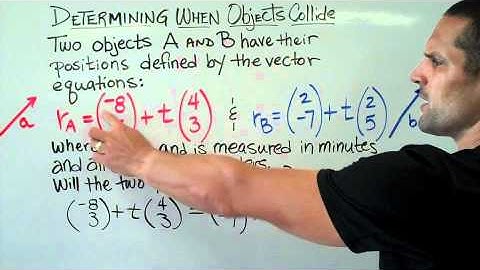 DETERMINING WHEN OBJECTS COLLIDE
TWO OBJECTS A AND B HAVE their
positions defined by the vector
equations:
a r_A = (-8 ) + t (4 3) & r_B = (2 -7) + t (2 5) b
where and is measured in minutes
and all
Will the two
(-8 3) + t (4 3) = (